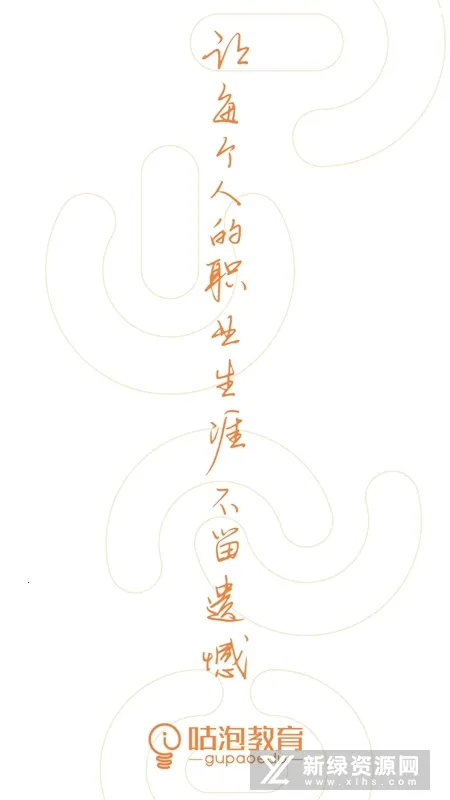 让每个人的职业生涯不留遗憾
咕泡教育
gupaoedu
新绿资源网
www.xlhs.com